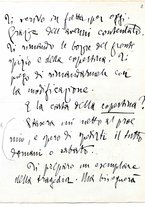 Ti scrivo in fretta per
Grazie dell'avermi contentato.
Ti rimando le bozze del fronte-
spizio e della copertina. Ti
prego di rimandarmele con
la modificazione.
E la carta della copertina?
Stasera mi metto al pro-
e spero di poterti il tutto
domani o sabato.
Ti preparo un esemplare
della tragedia. Ma bisognerà